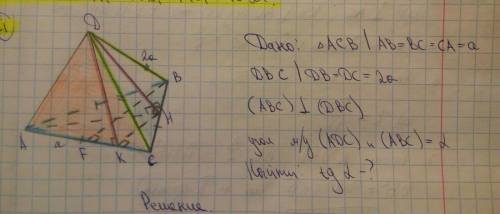 D
2a
B
H
A
a
F
K
C
Дано: △ACB | AB=BC=CA=a
DBC | DB=DC=2a
(ABC) ⊥ (DBC)
угол м/у (ADC) и (ABC) = α
Найти tg α-?
Решение.